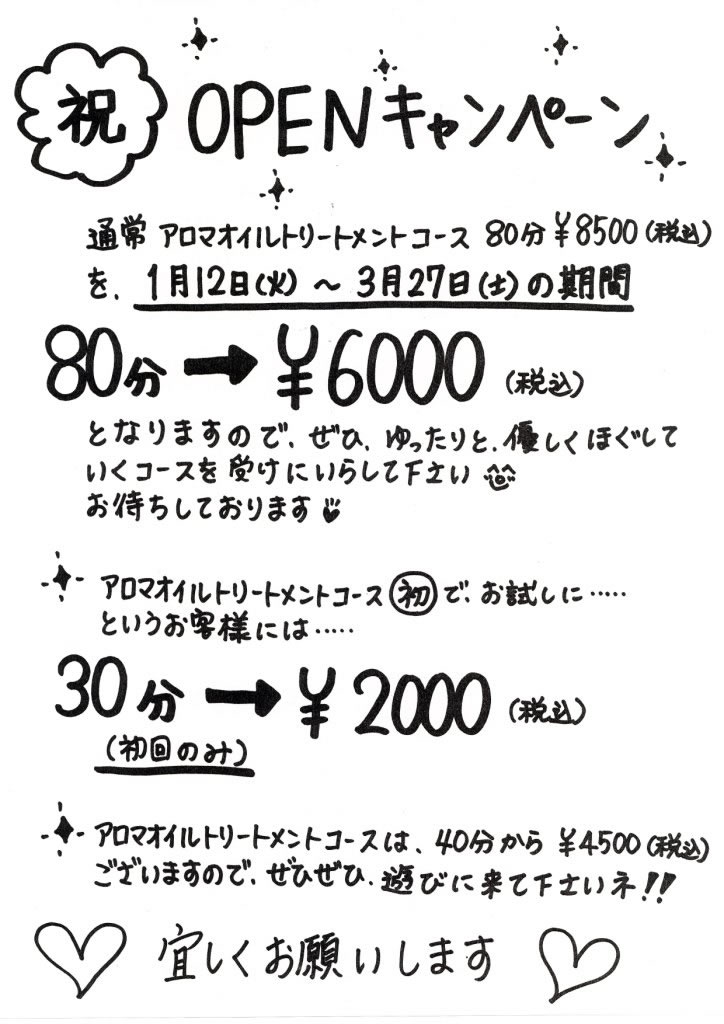 祝 OPENキャンペーン
通常 アロマオイルトリートメントコース 80分 ¥8500(税込)
を、1月12日(火) ~ 3月27日(土)の期間
80分 → ¥6000 (税込)
となりますので、ぜひ、ゆったりと、優しくほぐして
いくコースを受けにいらして下さい
お待ちしております
アロマオイルトリートメントコース 初 で、お試しに……
というお客様には……
30分 → ¥2000 (税込)
(初回のみ)
アロマオイルトリートメントコースは、40分から ¥4500(税込)
ございますので、ぜひぜひ、遊びに来て下さいネ!!
宜しくお願いします